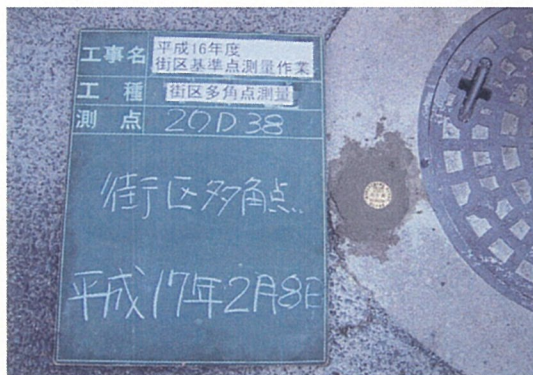 工事名 平成16年度
街区基準点測量作業
工種 街区多角点測量
測点 20D38
街区多角点
平成17年2月8日